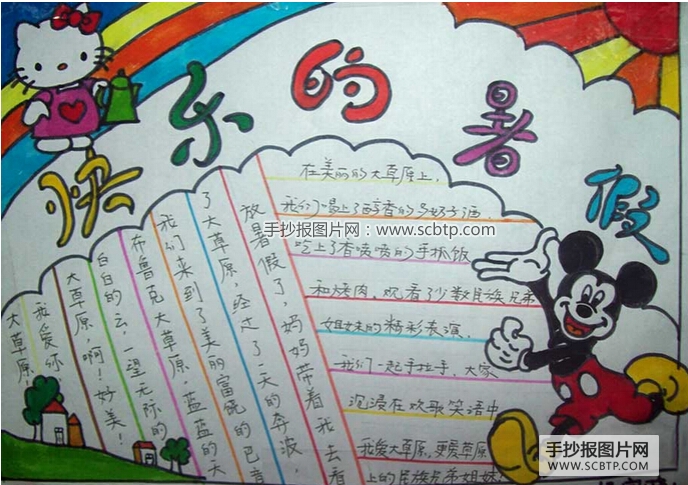 快乐的暑假
放暑假了，妈妈带着我去看
了大草原，经过了一天的奔波，
我们来到了美丽富饶的巴音
布鲁克大草原，蓝蓝的天
白白的云，一望无际的
大草原，啊！好美！
我爱你
大草原！
在美丽的大草原上，
我们喝上了醇香的马奶子酒，
手抄报图片网 - www.scbtp.com
吃上了香喷喷的手抓饭
和烤肉，观看了少数民族兄弟
姐妹的精彩表演，
我们一起手拉手，大家
沉浸在欢歌笑语中
我爱大草原，更爱草原
上的民族兄弟姐妹
手抄报图片网
WWW.SCBTP.COM